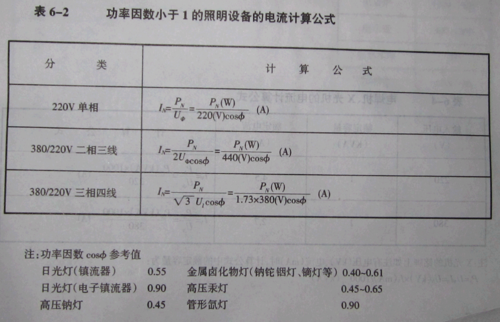 表 6-2 功率因数小于 1 的照明设备的电流计算公式
分 类 计 算 公 式
220V 单相 I_N= P_N/U_Φ = P_N(W)/220(V)cosϕ (A)
380/220V 二相三线 I_N= P_N/2U_Φcosϕ = P_N(W)/440(V)cosϕ (A)
380/220V 三相四线 I_N= P_N/√3 U_lcosϕ = P_N(W)/1.73×380(V)cosϕ (A)
注:功率因数 cosϕ 参考值
日光灯(镇流器) 0.55 金属卤化物灯(钠铊铟灯、镝灯等) 0.40~0.61
日光灯(电子镇流器) 0.90 高压汞灯 0.45~0.65
高压钠灯 0.45 管形氙灯 0.90